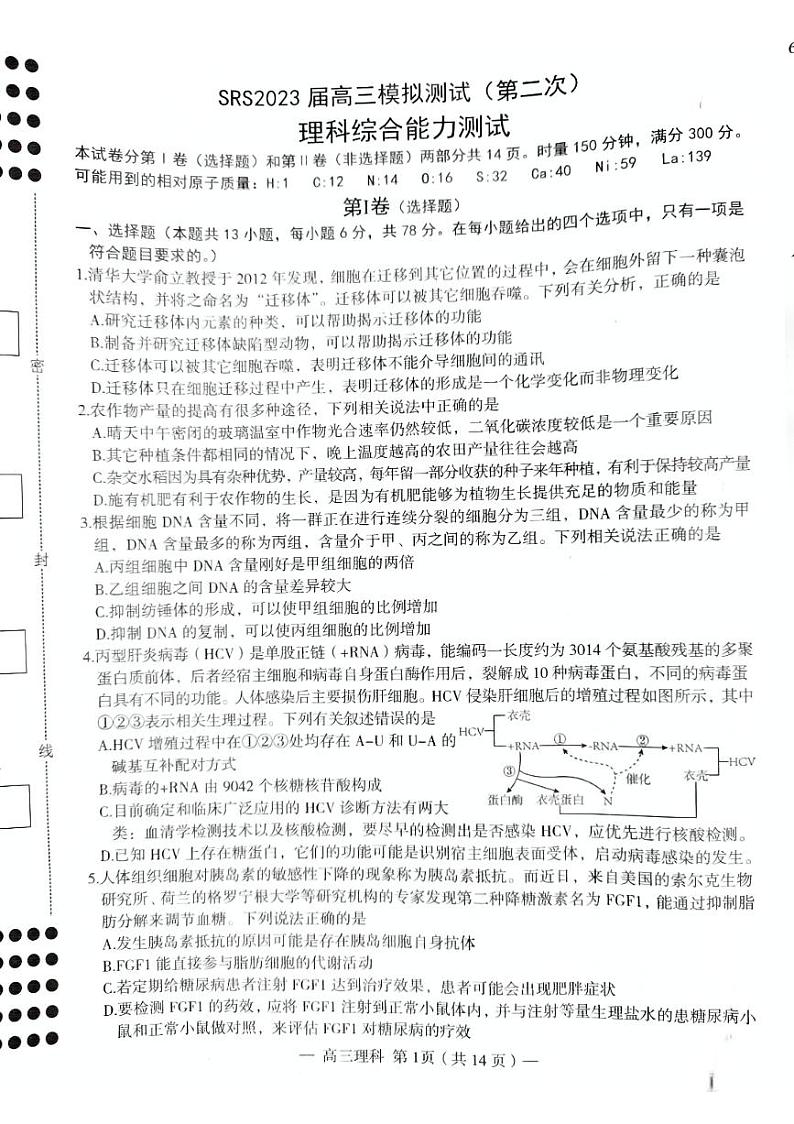 SRS2023 届高三模拟测试（第二次）
理科综合能力测试
本试卷分第Ⅰ卷（选择题）和第Ⅱ卷（非选择题）两部分共 14 页。时量 150 分钟，满分 300 分。
可能用到的相对原子质量：H:1 C:12 N:14 O:16 S:32 Ca:40 Ni:59 La:139
第Ⅰ卷（选择题）
一、选择题（本题共 13 小题，每小题 6 分，共 78 分。在每小题给出的四个选项中，只有一项是
符合题目要求的。）
1.清华大学俞立教授于 2012 年发现，细胞在迁移到其它位置的过程中，会在细胞外留下一种囊泡
状结构，并将之命名为“迁移体”。迁移体可以被其它细胞吞噬。下列有关分析，正确的是
A.研究迁移体内元素的种类，可以帮助揭示迁移体的功能
B.制备并研究迁移体缺陷型动物，可以帮助揭示迁移体的功能
C.迁移体可以被其它细胞吞噬，表明迁移体不能介导细胞间的通讯
D.迁移体只在细胞迁移过程中产生，表明迁移体的形成是一个化学变化而非物理变化
2.农作物产量的提高有很多种途径，下列相关说法中正确的是
A.晴天中午密闭的玻璃温室中作物光合速率仍然较低，二氧化碳浓度较低是一个重要原因
B.其它种植条件都相同的情况下，晚上温度越高的农田产量往往会越高
C.杂交水稻因为具有杂种优势，产量较高，每年留一部分收获的种子来年种植，有利于保持较高产量
D.施有机肥有利于农作物的生长，是因为有机肥能够为植物生长提供充足的物质和能量
3.根据细胞 DNA 含量不同，将一群正在进行连续分裂的细胞分为三组，DNA 含量最少的称为甲
组，DNA 含量最多的称为丙组，含量介于甲、丙之间的称为乙组。下列相关说法正确的是
A.丙组细胞中 DNA 含量刚好是甲组细胞的两倍
B.乙组细胞之间 DNA 的含量差异较大
C.抑制纺锤体的形成，可以使甲组细胞的比例增加
D.抑制 DNA 的复制，可以使丙组细胞的比例增加
4.丙型肝炎病毒（HCV）是单股正链（+RNA）病毒，能编码一长度约为 3014 个氨基酸残基的多聚
蛋白质前体，后者经宿主细胞和病毒自身蛋白酶作用后，裂解成 10 种病毒蛋白，不同的病毒蛋
白具有不同的功能。人体感染后主要损伤肝细胞。HCV 侵染肝细胞后的增殖过程如图所示，其中
①②③表示相关生理过程。下列有关叙述错误的是
A.HCV 增殖过程中在①②③处均存在 A-U 和 U-A 的
碱基互补配对方式
B.病毒的+RNA 由 9042 个核糖核苷酸构成
C.目前确定和临床广泛应用的 HCV 诊断方法有两大
类：血清学检测技术以及核酸检测，要尽早的检测出是否感染 HCV，应优先进行核酸检测。
D.已知 HCV 上存在糖蛋白，它们的功能可能是识别宿主细胞表面受体，启动病毒感染的发生。
HCV
衣壳
+RNA ① -RNA ② +RNA
HCV
③ 催化 衣壳
蛋白酶 衣壳蛋白 N
5.人体组织细胞对胰岛素的敏感性下降的现象称为胰岛素抵抗。而近日，来自美国的索尔克生物
研究所、荷兰的格罗宁根大学等研究机构的专家发现第二种降糖激素名为 FGF1，能通过抑制脂
肪分解来调节血糖。下列说法正确的是
A.发生胰岛素抵抗的原因可能是存在胰岛细胞自身抗体
B.FGF1 能直接参与脂肪细胞的代谢活动
C.若定期给糖尿病患者注射 FGF1 达到治疗效果，患者可能会出现肥胖症状
D.要检测 FGF1 的药效，应将 FGF1 注射到正常小鼠体内，并与注射等量生理盐水的患糖尿病小
鼠和正常小鼠做对照，来评估 FGF1 对糖尿病的疗效
— 高三理科 第 1页（共 14 页）—
密
封
线